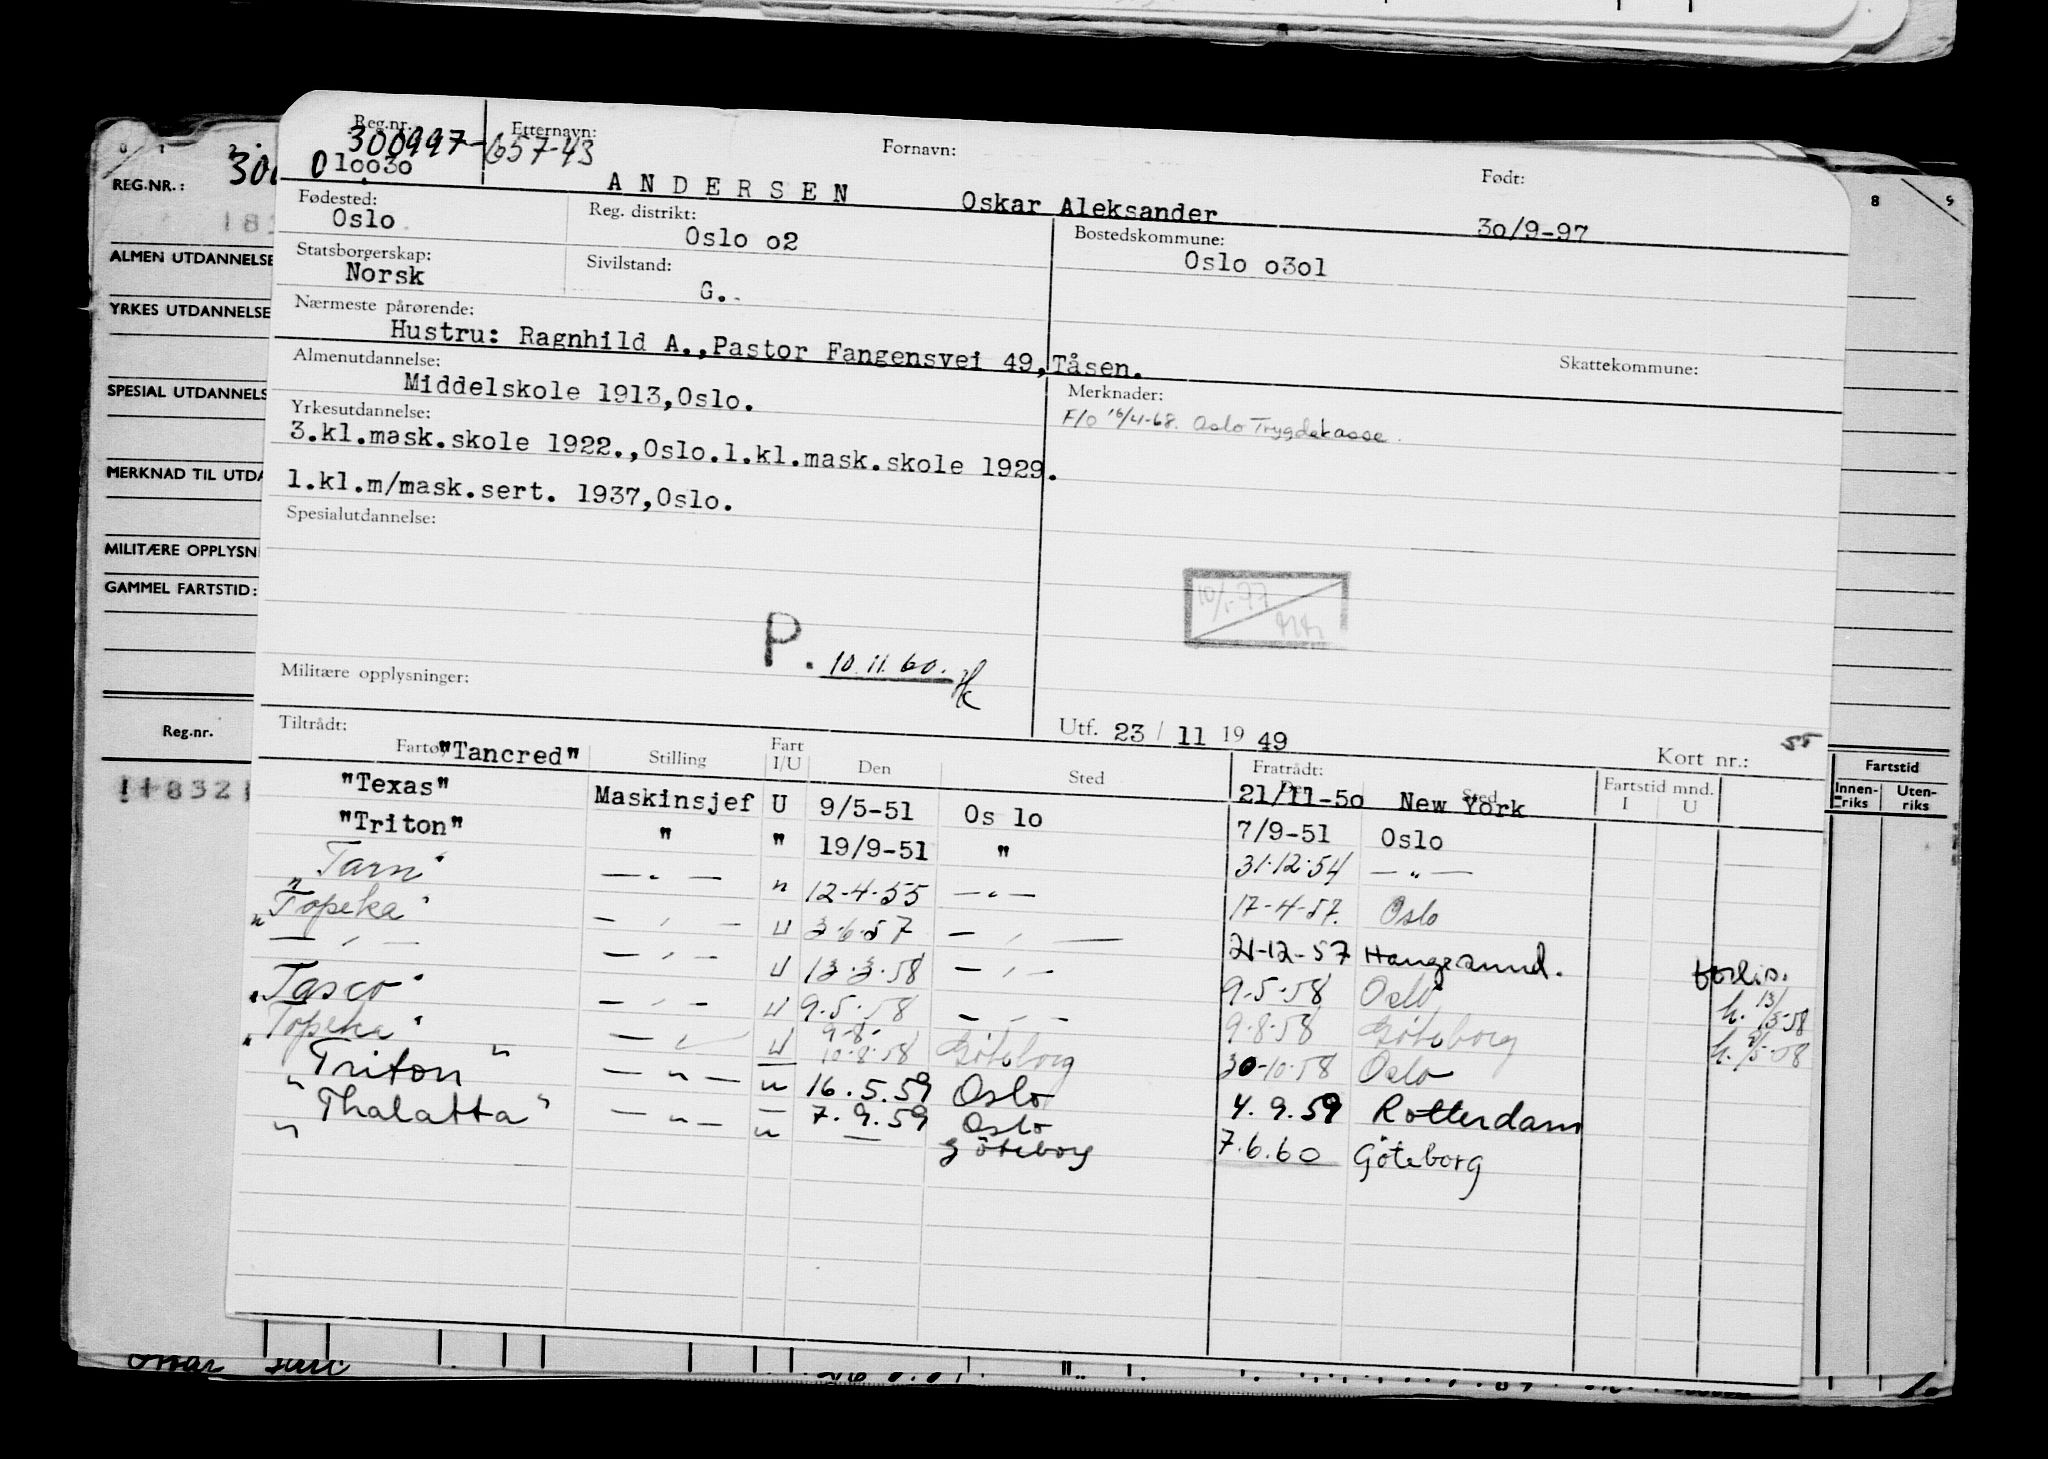 Reg.nr. Etternavn: Fornavn: Født:
300997-657-43
010030 ANDERSEN Oskar Aleksander 30/9-97
Fødested: Reg. distrikt: Bostedskommune:
Oslo Oslo o2 Oslo o3o1
Statsborgerskap: Sivilstand:
Norsk G.
Nærmeste pårørende:
Hustru: Ragnhild A.,Pastor Fangensvei 49,Tåsen.
Skattekommune:
Almenutdannelse: Merknader:
Middelskole 1913,Oslo. F/o 16/4-68. Oslo Trygdekasse.
Yrkesutdannelse:
3.kl.mask.skole 1922.,Oslo.1.kl.mask.skole 1929.
1.kl.m/mask.sert. 1937,Oslo.
Spesialutdannelse:
P. 10.11.60.
Militære opplysninger:
Utf. 23 / 11 19 49 Kort nr.: 55
Tiltrådt: Fratrådt:
Fartøy Stilling Fart I/U Den Sted Den Sted Fartstid mnd. I U
"Tancred" 21/11-5o New York
"Texas" Maskinsjef U 9/5-51 Os lo 7/9-51 Oslo
"Triton" " " 19/9-51 " 31.12.54 — " —
"Tarn" — " — " 12-4-55 — " — 17-4-57. Oslo
"Topeka" — " — U 3.6.57 — " — 21-12-57 Haugesund. forlis.
— " — — " — U 13.3.58 — " — 9.5.58 Oslo h. 13/3-58
"Tasco" — " — U 9.5.58 — " — 9.8.58 Göteborg h. 9/5-58
"Topeka" — " — U 9.8. 10.8.58 Göteborg 30-10-58 Oslo
"Triton" — " — " 16.5.59 Oslo 4.9.59 Rotterdam
"Thalatta" — " — " 7.9.59 Oslo Göteborg 7.6.60 Göteborg
REG.NR.: 300
ALMEN UTDANNELSE
YRKES UTDANNELSE
SPESIAL UTDANNELS
MERKNAD TIL UTDA
MILITÆRE OPPLYSN
GAMMEL FARTSTID:
Reg.nr.
Fartstid
Innen-riks Uten-riks
8 9